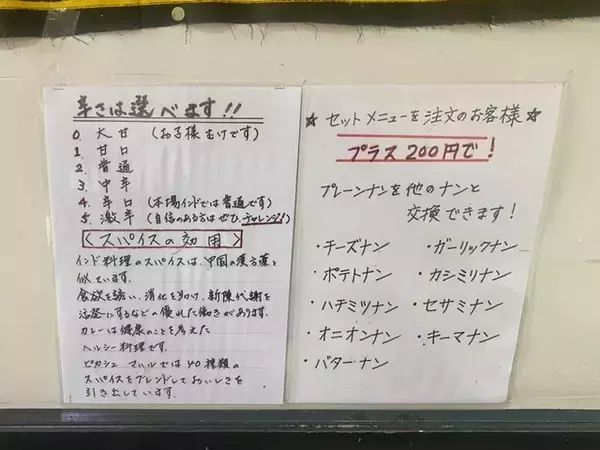 辛さは選べます!!
0. 大甘 (お子様むけです)
1. 甘口
2. 普通
3. 中辛
4. 辛口 (本場インドでは普通です)
5. 激辛 (自信のある方はぜひ、チャレンジ!)
〈スパイスの効用〉
インド料理のスパイスは、中国の漢方薬と
似ています。
食欲を誘い、消化を助け、新陳代謝を
活発にするなどの優れた働きがあります。
カレーは健康のことを考えた
ヘルシー料理です。
ピカシュ マハルでは40種類の
スパイスをブレンドしておいしさを
引き出しています。
☆ セットメニューを注文のお客様 ☆
プラス200円で!
プレーンナンを他のナンと
交換できます!
・チーズナン ・ガーリックナン
・ポテトナン ・カシミリナン
・ハチミツナン ・セサミナン
・オニオンナン ・キーマナン
・バターナン